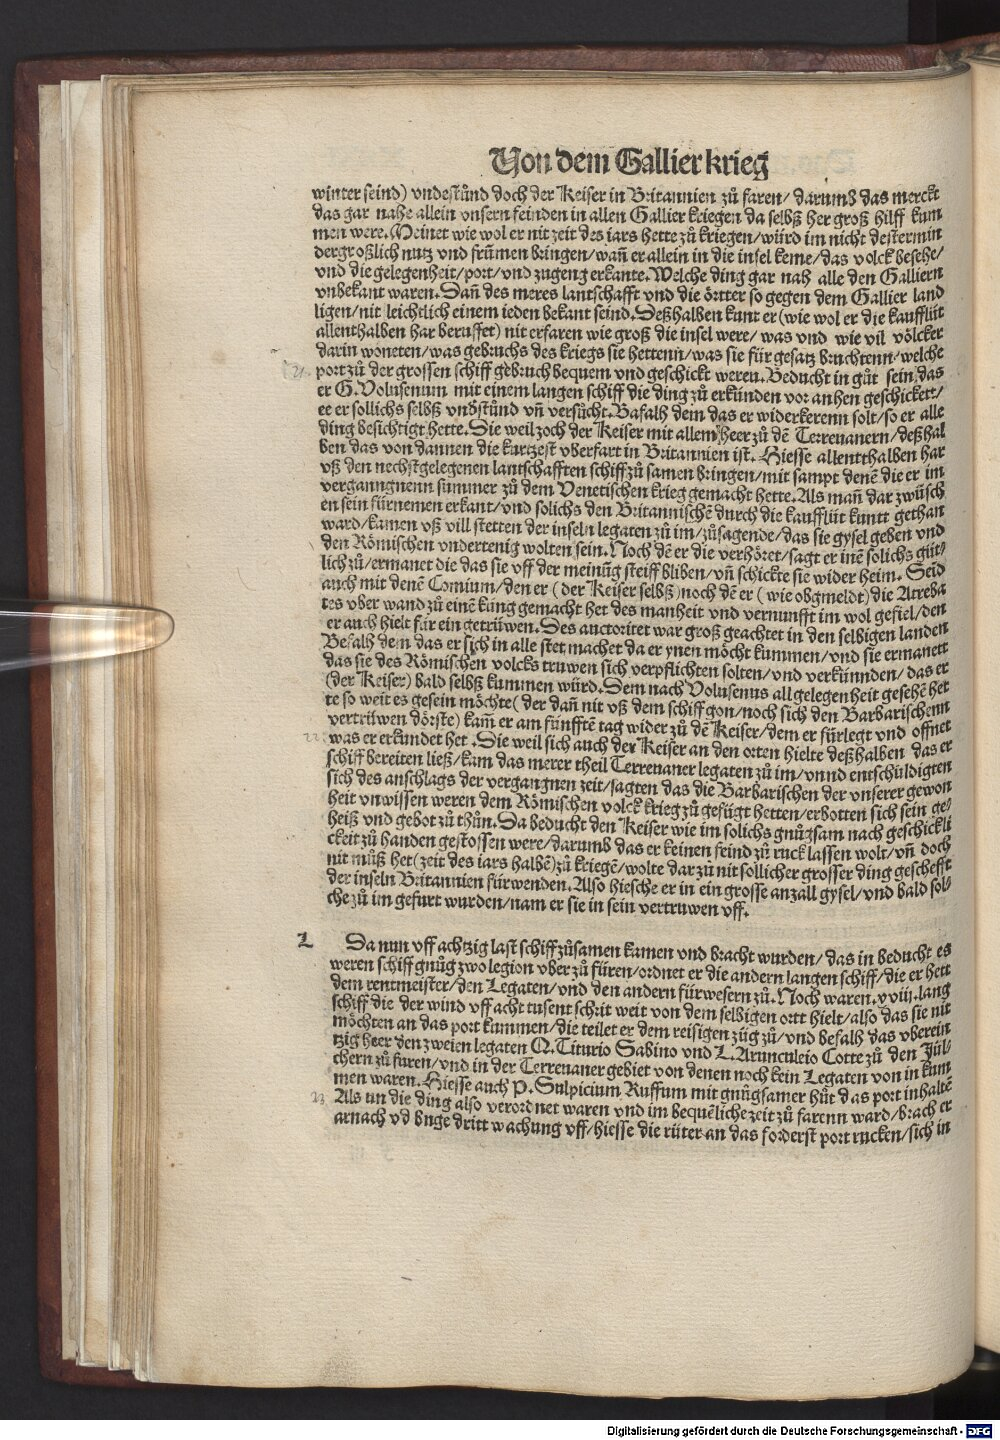 Von dem Gallier krieg
winter seind) vndestůnd doch der Keiser in Britannien zů faren/ darumb das merckt
das gar nahe allein vnsern feinden in allen Gallier kriegen da selbß her groß hilff kum
men were. Meinet wie wol er nit zeit des iars hette zů kriegen/ würd im nicht destermin
der großlich nutz vnd frümen bringen/ wañ er allein in die insel keme/ das volck besehe/
vnd die gelegenheit/ port/ vnd zugeng erkante. Welche ding gar nah alle den Galliern
vnbekant waren. Dañ des meres lantschafft vnd die örtter so gegen dem Gallier land
ligen/ nit leichtlich einem ieden bekant seind. Deßhalben kunt er (wie wol er die kaufflüt
allenthalben har berüffet) nit erfaren wie groß die insel were/ was vnd wie vil völcker
darin woneten/ was gebruchs des kriegs sie hettenn/ was sie für gesatz bruchtenn/ welche
21 port zů der grossen schiff gebruch bequem vnd geschickt weren. Beducht in gůt sein das
er G. Volusenum mit einem langen schiff die ding zů erkunden vor anhen geschickett/
ee er sollichs selbß vnderstůnd vñ versůcht. Bafalh dem das er widerkerenn solt/ so er alle
ding besichtigt hette. Die weil zoch der Keiser mit allem heer zů dē Terreuanern/ deßhal
ben das von dannen die kurtzest vberfart in Britannien ist. Hiesse allentthalben har
vß den nechstgelegenen lantschafften schiff zů samen bringen/ mit sampt denē die er im
verganngnenn summer zů dem Venetischen krieg gemacht hette. Als mañ dar zwüsch
en sein fürnemen erkant/ vnd solichs den Britannischē durch die kaufflüt kuntt gethan
ward/ kamen vß vill stetten der inseln legaten zů im/ zůsagende/ das sie gysel geben vnd
den Römischen vndertenig wolten sein. Noch dē er die verhötet/ sagt er inē solichs güt/
lich zů/ ermanet die das sie vff der meinũg steiff bliben/ vñ schickte sie wider heim. Seid
auch mit denē Comium/ den er ( der Keiser selbß) noch dē er ( wie obgmeldt) die Atreba
tes vber wand zů einē kung gemacht het des manheit vnd vernunfft im wol gefiel/ den
er auch hielt für ein getrüwen. Des auctoritet war groß geachtet in den selbigen landen
Befalh dem das er sich in alle stet machet da er ynen möcht kummen/ vnd sie ermanett
das sie des Römischen volcks truwen sich verpflichten solten/ vnd verkünnden/ das er
(der Keiser) bald selbß kummen würd. Dem nach Volusenus all gelegenheit gesehē het
te so weit es gesein möchte ( der dañ nit vß dem schiff gon/ noch sich den Barbarischenn
vertrüwen dörste) kam̃ er am fünfftē tag wider zů dē Keiser/ dem er fürlegt vnd offnet
22 was er erkundet het. Die weil sich auch der Keiser an den orten hielte deßhalben das er
schiff bereiten ließ/ kam das merer theil Terreuaner legaten zů im/ vnnd entschüldigten
sich des anschlags der vergangnen zeit/ sagten das die Barbarischen der vnserer gewon
heit vnwissen weren dem Römischen volck krieg zů gefügt hetten/ erbotten sich sein ge/
heiß vnd gebot zů thůn. Da beducht den Keiser wie im solichs gnůgsam nach geschickli
ckeit zů handen gestossen were/ darumb das er keinen feind zů ruck lassen wolt/ vñ doch
nit můß het (zeit des iars halbē) zů kriegē/ wolte dar zů nit sollicher grosser ding geschefft
der inseln Britannien fürwenden. Also hiesche er in ein grosse anzall gysel/ vnd bald sol/
che zů im gefurt wurden/ nam er sie in sein vertruwen vff.
L Da nun vff achtzig last schiff zůsamen kamen vnd bracht wurden/ das in beducht es
weren schiff gnůg zwo legion vber zů füren/ ordnet er die andern langen schiff/ die er hett
dem rentmeister/ den Legaten/ vnd den andern fürwesern zů. Noch waren. xviij. lang
schiff die der wind vff acht tusent schrit weit von dem selbigen ortt hielt/ also das sie nit
möchten an das port kummen/ die teilet er dem reisigen züg zů/ vnd befalh das vberein
tzig heer den zweien legaten Q. Titurio Sabino vnd L. Arunculeio Cotte zů den Jül/
chern zů furen/ vnd in der Terreuaner gebiet von denen noch kein Legaten von in kum
men waren. Hiesse auch P. Sulpicium Ruffum mit gnůgsamer hůt das port inhaltē
23 Als un die ding also verordnet waren vnd im bequēliche zeit zů farenn ward/ brach er
arnach vd bnge dritt wachung vff/ hiesse die rüter an das forderst port rucken/ sich in
Digitalisierung gefördert durch die Deutsche Forschungsgemeinschaft - DFG